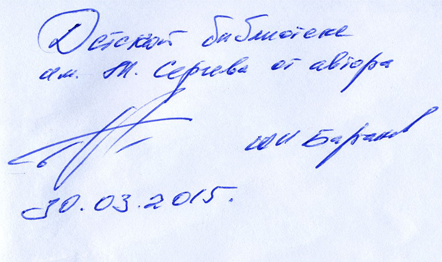 Детской библиотеке
им. М. Сергеева от автора
ЮИ Баранов
30.03.2015.